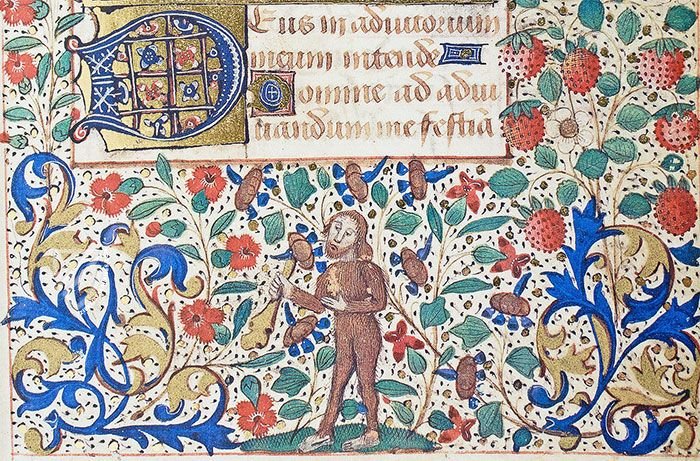 DEus in adiutorium
meum intende
Domine ad adiu
uandum me festīa